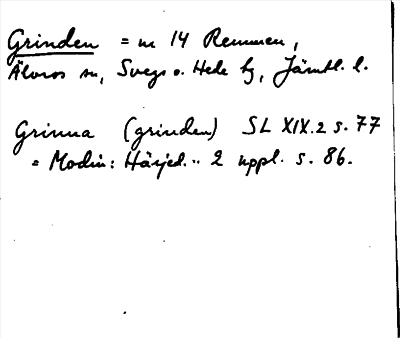 Grinden = nr 14 Remmen,
Älvros sn, Svegs o. Hede tg, Jämtl. l.
Grinna (grinden) SL XIX.2 s. 77
= Modin: Härjed. .. 2 uppl. s. 86.